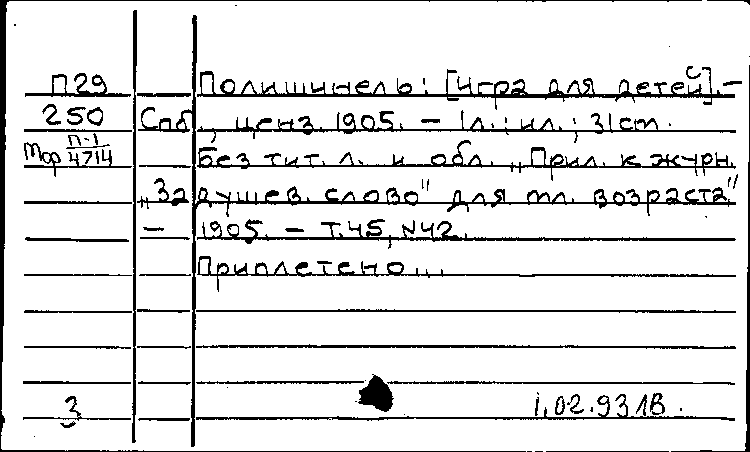 П29 Полишинель: [Игра для детей].–
250 Спб., ценз. 1905. – 1л.: ил.; 31 ст.
Мор П-1/4714 Без тит. л. и обл. „Прил. к журн.
„Задушев. слово" для мл. возраста"
– 1905. – Т.45, N42.
Приплетено...
3 1.02.93